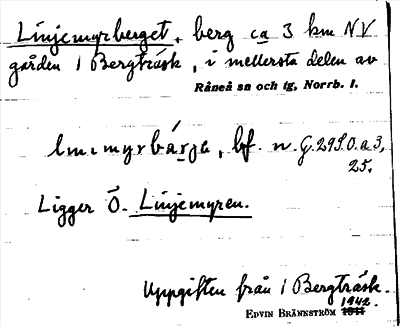 Linjemyrberget, berg ca 3 km NV
gården 1 Bergträsk, i mellersta delen av
Råneå sn och tg, Norrb. l.
bf. n. G.2950.a3,
25.
Ligger Ö. Linjemyren.
Uppgiften från 1 Bergträsk.
EDVIN BRÄNNSTRÖM 1942.